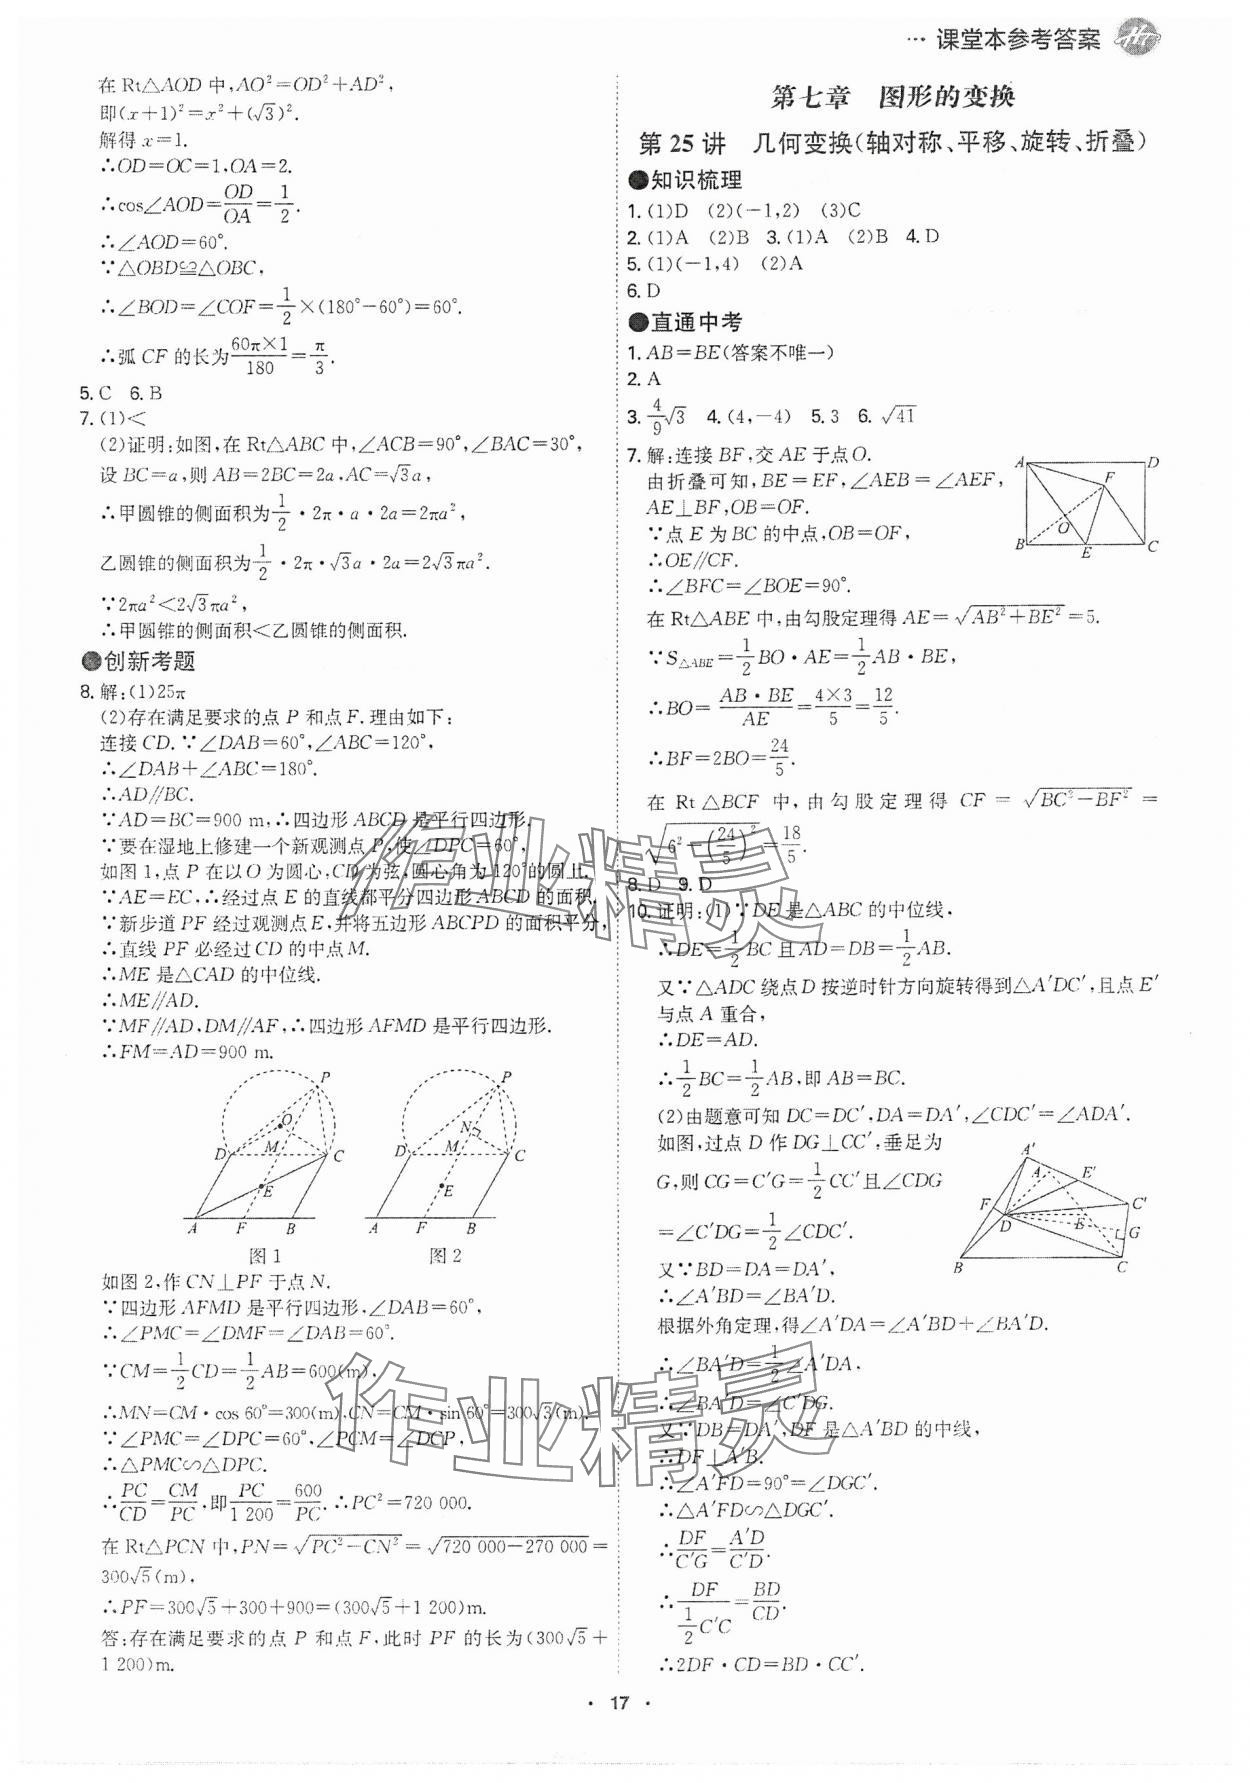 ··· 课堂本参考答案
在 Rt△AOD 中,AO²=OD²+AD²,
即(x+1)²=x²+(√3)².
解得 x=1.
∴OD=OC=1,OA=2.
∴cos∠AOD=OD/OA=1/2.
∴∠AOD=60°.
∵△OBD≌△OBC,
∴∠BOD=∠COF=1/2×(180°-60°)=60°.
∴弧 CF 的长为60π×1/180=π/3.
5. C 6. B
7. (1)<
(2)证明:如图,在 Rt△ABC 中,∠ACB=90°,∠BAC=30°,
设 BC=a,则 AB=2BC=2a,AC=√3a,
∴甲圆锥的侧面积为1/2·2π·a·2a=2πa²,
乙圆锥的侧面积为1/2·2π·√3a·2a=2√3πa².
∵2πa²<2√3πa²,
∴甲圆锥的侧面积<乙圆锥的侧面积.
●创新考题
8. 解:(1)25π
(2)存在满足要求的点 P 和点 F. 理由如下:
连接 CD. ∵∠DAB=60°,∠ABC=120°,
∴∠DAB+∠ABC=180°.
∴AD∥BC.
∵AD=BC=900 m,∴四边形 ABCD 是平行四边形.
∵要在湿地上修建一个新观测点 P,使∠DPC=60°,
如图 1,点 P 在以 O 为圆心,CD 为弦,圆心角为 120°的圆上.
∵AE=EC,∴经过点 E 的直线都平分四边形 ABCD 的面积.
∵新步道 PF 经过观测点 E,并将五边形 ABCPD 的面积平分,
∴直线 PF 必经过 CD 的中点 M.
∴ME 是△CAD 的中位线.
∴ME∥AD.
∵MF∥AD,DM∥AF,∴四边形 AFMD 是平行四边形.
∴FM=AD=900 m.
P O D M C E A F B
图 1
P N D M C E A F B
图 2
如图 2,作 CN⊥PF 于点 N.
∵四边形 AFMD 是平行四边形,∠DAB=60°,
∴∠PMC=∠DMF=∠DAB=60°.
∵CM=1/2CD=1/2AB=600(m),
∴MN=CM·cos 60°=300(m),CN=CM·sin 60°=300√3(m).
∵∠PMC=∠DPC=60°,∠PCM=∠DCP,
∴△PMC∽△DPC.
∴PC/CD=CM/PC,即PC/1 200=600/PC. ∴PC²=720 000.
在 Rt△PCN 中,PN=√(PC²-CN²)=√(720 000-270 000)=
300√5(m),
∴PF=300√5+300+900=(300√5+1 200)m.
答:存在满足要求的点 P 和点 F,此时 PF 的长为(300√5+
1 200)m.
第七章 图形的变换
第 25 讲 几何变换(轴对称、平移、旋转、折叠)
●知识梳理
1. (1)D (2)(-1,2) (3)C
2. (1)A (2)B 3. (1)A (2)B 4. D
5. (1)(-1,4) (2)A
6. D
●直通中考
1. AB=BE(答案不唯一)
2. A
3. 4/9√3 4. (4,-4) 5. 3 6. √41
7. 解:连接 BF,交 AE 于点 O.
由折叠可知,BE=EF,∠AEB=∠AEF,
AE⊥BF,OB=OF.
∵点 E 为 BC 的中点,OB=OF,
∴OE∥CF.
∴∠BFC=∠BOE=90°.
A D F O B E C
在 Rt△ABE 中,由勾股定理得 AE=√(AB²+BE²)=5.
∵S△ABE=1/2BO·AE=1/2AB·BE,
∴BO=AB·BE/AE=4×3/5=12/5.
∴BF=2BO=24/5.
在 Rt△BCF 中,由勾股定理得 CF=√(BC²-BF²)=
√(6²-(24/5)²)=18/5.
8. D 9. D
10. 证明:(1)∵DE 是△ABC 的中位线,
∴DE=1/2BC 且 AD=DB=1/2AB.
又∵△ADC 绕点 D 按逆时针方向旋转得到△A′DC′,且点 E′
与点 A 重合,
∴DE=AD.
∴1/2BC=1/2AB,即 AB=BC.
(2)由题意可知 DC=DC′,DA=DA′,∠CDC′=∠ADA′.
如图,过点 D 作 DG⊥CC′,垂足为
G,则 CG=C′G=1/2CC′且∠CDG
=∠C′DG=1/2∠CDC′.
A′ A E′ C′ F D E G B C
又∵BD=DA=DA′,
∴∠A′BD=∠BA′D.
根据外角定理,得∠A′DA=∠A′BD+∠BA′D.
∴∠BA′D=1/2∠A′DA,
∴∠BA′D=∠C′DG.
又∵DB=DA′,DF 是△A′BD 的中线,
∴DF⊥A′B.
∴∠A′FD=90°=∠DGC′.
∴△A′FD∽△DGC′.
∴DF/C′G=A′D/C′D.
∴DF/(1/2C′C)=BD/CD.
∴2DF·CD=BD·CC′.
· 17 ·
作业精灵
作业精灵